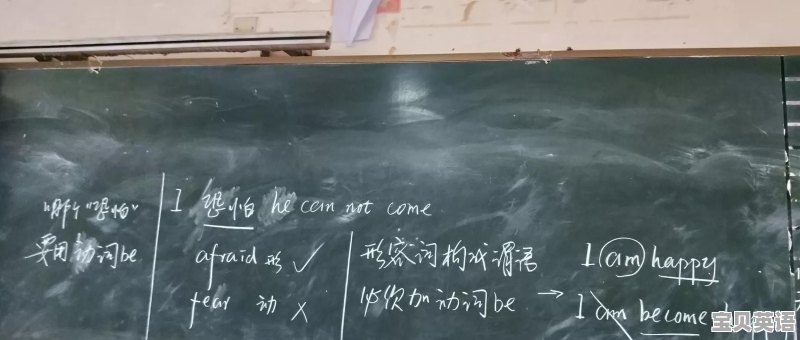 哪个"恐怕"
要用动词be
I 恐怕 he can not come
afraid 形 ✓
fear 动 ×
形容词构成谓语
必须加动词be →
I am happy
I am become
宝贝英语